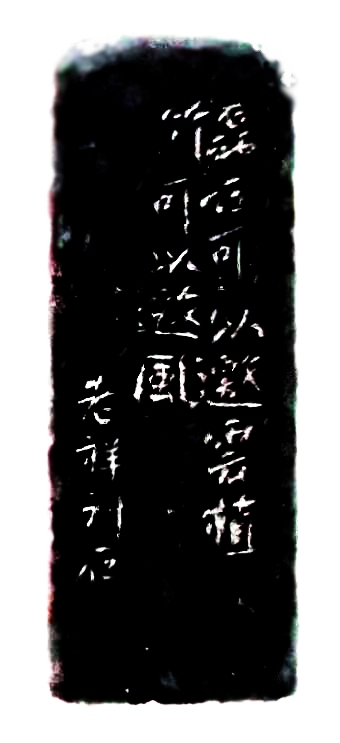 磊石可以邀雲植
竹可以邀風
老祥刊石